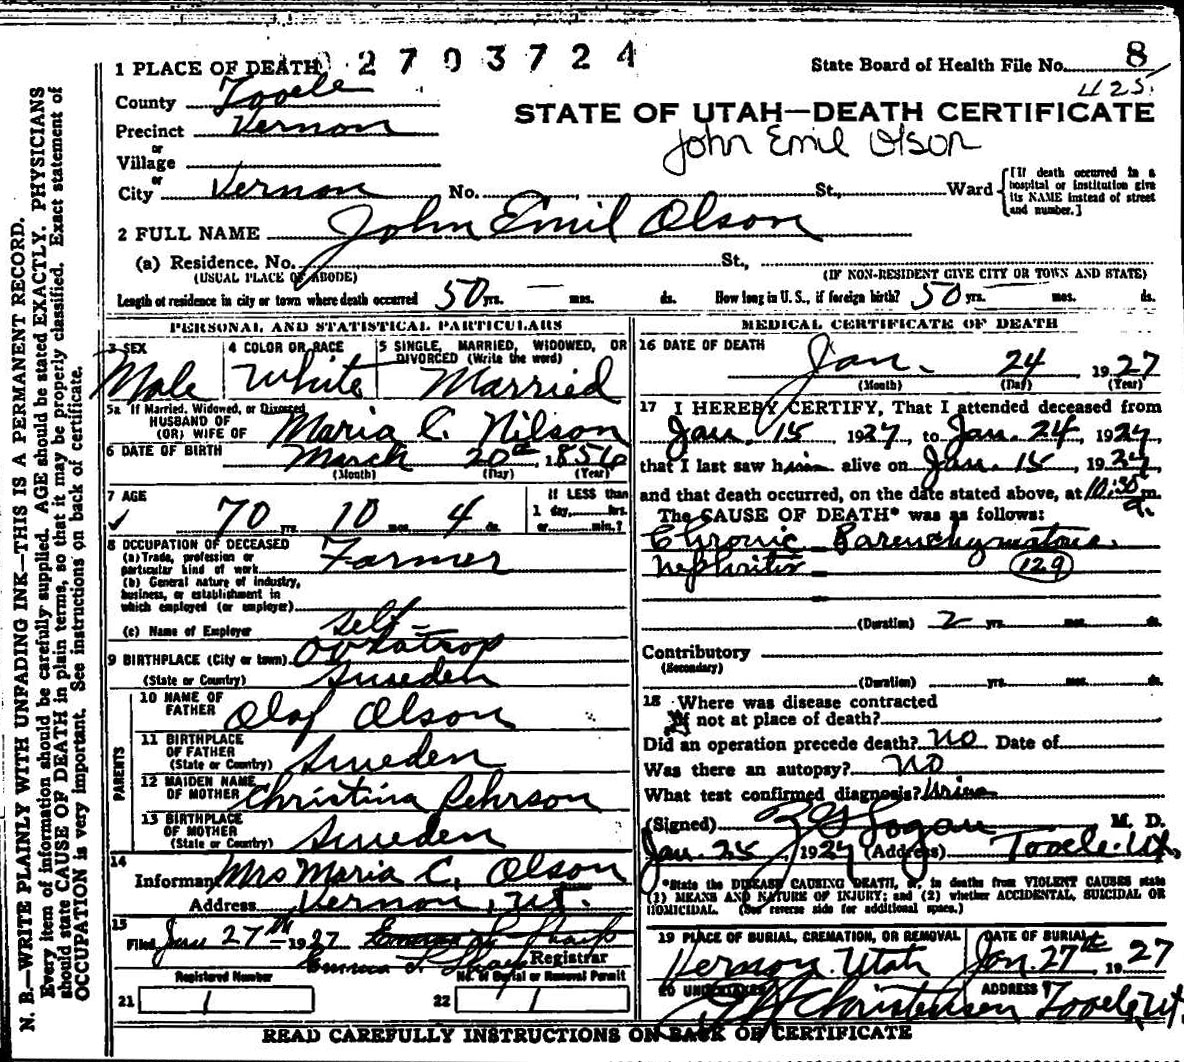 2703724
1 PLACE OF DEATH
State Board of Health File No. 8
425
County Tooele
STATE OF UTAH—DEATH CERTIFICATE
Precinct Vernon
John Emil Olson
or
Village
or
City Vernon No. St., Ward
[If death occurred in a hospital or institution give its NAME instead of street and number.]
2 FULL NAME John Emil Olson
(a) Residence. No. St.,
(USUAL PLACE OF ABODE) (IF NON-RESIDENT GIVE CITY OR TOWN AND STATE)
Length of residence in city or town where death occurred 50 yrs. — mos. ds. How long in U. S., if foreign birth? 50 yrs. — mos. ds.
PERSONAL AND STATISTICAL PARTICULARS
3 SEX Male
4 COLOR OR RACE White
5 SINGLE, MARRIED, WIDOWED, OR DIVORCED (Write the word) Married
5a If Married, Widowed, or Divorced
HUSBAND OF
(OR) WIFE OF Maria C. Nilson
6 DATE OF BIRTH March 20th, 1856
(Month) (Day) (Year)
7 AGE 70 yrs. 10 mos. 4 ds.
If LESS than
1 day, hrs.
or min.?
8 OCCUPATION OF DECEASED
(a) Trade, profession or
particular kind of work Farmer
(b) General nature of industry,
business, or establishment in
which employed (or employer)
(c) Name of Employer self
9 BIRTHPLACE (City or town)
(State or Country) Sweden
PARENTS
10 NAME OF FATHER Olof Olson
11 BIRTHPLACE OF FATHER
(State or Country) Sweden
12 MAIDEN NAME OF MOTHER Christina Pehrson
13 BIRTHPLACE OF MOTHER
(State or Country) Sweden
14
Informant Mrs Maria C. Olson
Address Vernon, Ut.
15
Filed Jan 27th 1927
Emma Registrar
Registered Number No. of Burial or Removal Permit
21 1 22 1
MEDICAL CERTIFICATE OF DEATH
16 DATE OF DEATH Jan. 24 1927
(Month) (Day) (Year)
17 I HEREBY CERTIFY, That I attended deceased from
Jan. 15 1927, to Jan. 24, 1927
that I last saw him alive on Jan. 15, 1927
and that death occurred, on the date stated above, at 10:30 a. m.
The CAUSE OF DEATH* was as follows:
Chronic Parenchymatous
Nephritis 129
(Duration) 2 yrs. mos. ds.
Contributory
(Secondary)
(Duration) yrs. mos. ds.
18 Where was disease contracted
If not at place of death?
Did an operation precede death? No Date of
Was there an autopsy? No
What test confirmed diagnosis? Urine
(Signed) Logan M. D.
Jan. 25 1927 (Address) Tooele. Ut.
*State the DISEASE CAUSING DEATH, or, in deaths from VIOLENT CAUSES state
(1) MEANS AND NATURE OF INJURY; and (2) whether ACCIDENTAL, SUICIDAL OR
HOMICIDAL. (See reverse side for additional space.)
19 PLACE OF BURIAL, CREMATION, OR REMOVAL Vernon. Utah
DATE OF BURIAL Jan. 27th, 1927
20 UNDERTAKER Christensen
ADDRESS Tooele, Ut.
READ CAREFULLY INSTRUCTIONS ON BACK OF CERTIFICATE
N. B.—WRITE PLAINLY WITH UNFADING INK—THIS IS A PERMANENT RECORD.
Every item of information should be carefully supplied. AGE should be stated EXACTLY. PHYSICIANS
should state CAUSE OF DEATH in plain terms, so that it may be properly classified. Exact statement of
OCCUPATION is very important. See instructions on back of certificate.